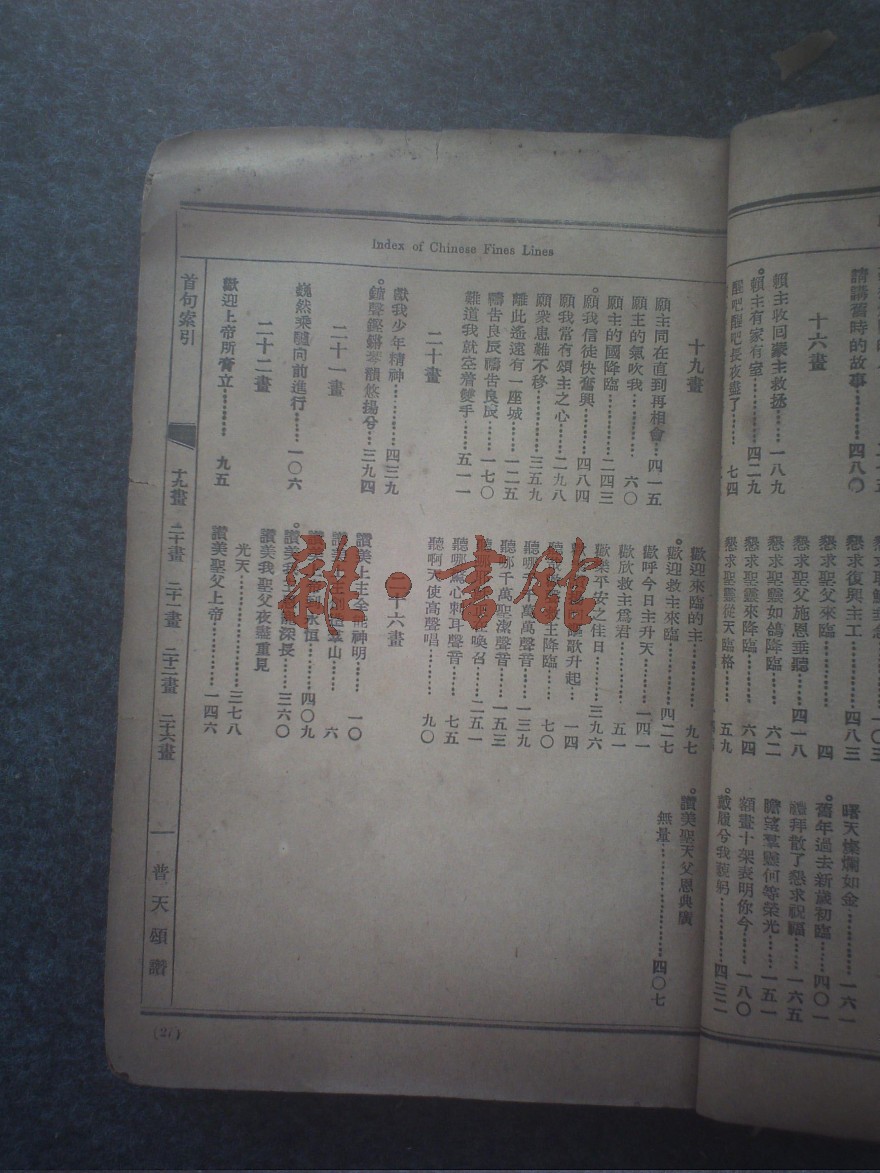 Index of Chinese Fines Lines
請講舊時的故事……四八〇
十六畫
賴主收回蒙主救拯……一八九
。賴主有家有室……四二九
醒吧醒吧長夜盡了……七四
懇求復興主工……四八三
懇求聖父來臨……四
懇求聖父施恩垂聽……四一八
懇求聖靈如鴿降臨……六二
懇求聖靈來降臨……六四
懇求聖靈從天臨格……五九
曙天燦爛如金……一六一
。舊年過去新歲初臨……四〇一
禮拜散了懇求祝福……一六五
瞻望羣靈何等榮光……一五一
額畫十架表明你今……一八〇
。戴履兮我親躬……四三二
十九畫
願主同在直到再相會……四一五
願主的氣吹我……六〇
願主的國降臨……二四三
。願我信徒快奮興……四八四
願我常有頌主之心……二九八
願衆患難不移……三五九
離此遙遠有一座城……一二五
禱告良辰禱告良辰……一七〇
難道我就空着雙手……五一一
二十畫
獻我少年精神……四三九
。鐘聲鏗鏘琴韻悠揚兮……三九四
二十一畫
巍然乘驢向前進行……一〇六
二十二畫
歡迎上帝所膏立……九五
歡迎來臨的主……九七
。歡迎救主來臨……四二七
歡呼今日主升天……一四一
歡欣救主爲君……五一
歡樂平安之佳日……三九六
歌升起……一四
主降臨……七〇
聽哪 萬萬聲音……一三九
聽哪千萬聖潔聲音……一五三
喚召……二五一
聽哪 心刺耳聲音……七五
聽啊天使高聲唱……九〇
二十六畫
讚美上主全能神明……一〇
山……六
永恒……四〇九
。讚美我 深長……三六〇
讚美我聖父夜盡重見
光天……三七八
讚美聖父上帝……一四六
。讚美聖天父恩典廣
無量……四〇七
首句索引
十九畫 二十畫 二十一畫 二十二畫 二十六畫
普天頌讚
(27)
雜·書館